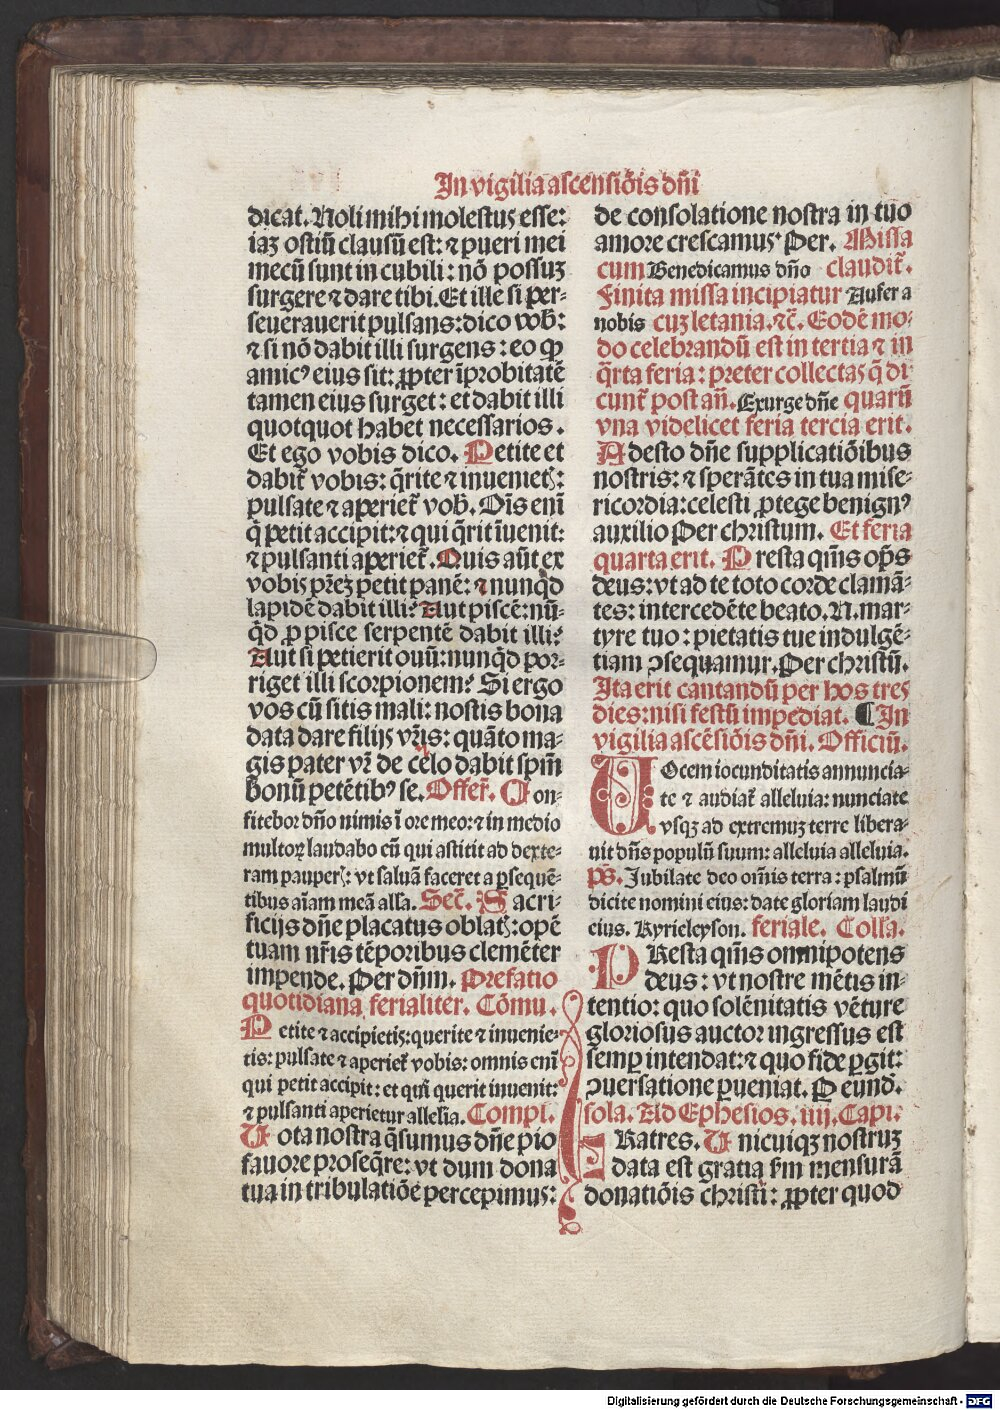 In vigilia ascensiōis dn̄i
dicat. Noli mihi molestus esse:
iaꝫ ostiū clausū est: ⁊ pueri mei
mecū sunt in cubili: nō possuꝫ
surgere ⁊ dare tibi. Et ille si per-
seuerauerit pulsans: dico vob̄:
⁊ si nō dabit illi surgens: eo ꝙ
amicꝰ eius sit: ꝓpter īprobitatē
tamen eius surget: et dabit illi
quotquot habet necessarios.
Et ego vobis dico. Petite et
dabit̄ vobis: q̄rite ⁊ inuenietꝭ:
pulsate ⁊ aperiet̄ vob̄. Oīs enī
q̇ petit accipit: ⁊ qui q̄rit īuenit:
⁊ pulsanti aperiet̄. Quis aūt ex
vobis pr̄eꝫ petit panē: ⁊ nunqͥd
lapidē dabit illi? Aut piscē: nū-
qͥd ꝓ pisce serpentē dabit illi?
Aut si petierit ouū: nunqͥd por-
riget illi scorpionem? Si ergo
vos cū sitis mali: nostis bona
data dare filijs vr̄is: quāto ma-
gis pater vr̄ de celo dabit spm̄
bonū petētibꝰ se. Offer̄. Con-
fitebor dn̄o nimis ī ore meo: ⁊ in medio
multoꝝ laudabo eū qui astitit ad dexte-
ram pauperꝭ: vt saluā faceret a ꝑsequē-
tibus aīam meā alla. Sec̄. Sacri-
ficijs dn̄e placatus oblatꝭ: opē
tuam nr̄is tēporibus clemēter
impende. Per dn̄m. Prefatio
quotidiana ferialiter. Cōmu.
Petite ⁊ accipietis: querite ⁊ inuenie-
tis: pulsate ⁊ aperiet̄ vobis: omnis enī
qui petit accipit: et qui querit inuenit:
⁊ pulsanti aperietur allelia. Compl.
Uota nostra q̄sumus dn̄e pio
fauore proseq̄re: vt dum dona
tua in tribulatiōe percepimus:
de consolatione nostra in tuo
amore crescamus. Per. Missa
cum Benedicamus dn̄o claudit̄.
Finita missa incipiatur Aufer a
nobis cuꝫ letania. ⁊c̄. Eodē mo-
do celebrandū est in tertia ⁊ in
q̄rta feria: preter collectas q̄ di
cunt̄ post an̄. Exurge dn̄e quarū
vna videlicet feria tercia erit.
Adesto dn̄e supplicatiōibus
nostris: ⁊ sperātes in tua mise-
ricordia: celesti ꝓtege benignꝰ
auxilio Per christum. Et feria
quarta erit. Presta qm̄s op̄s
deus: vt ad te toto corde clamā-
tes: intercedēte beato. N. mar-
tyre tuo: pietatis tue indulgē-
tiam ꝯsequamur. Per christū.
Ita erit cantandū per hos tres
dies: nisi festū impediat. ¶ In
vigilia ascēsiōis dn̄i. Officiū.
Uocem iocunditatis annuncia-
te ⁊ audiat̄ alleluia: nunciate
vsqꝫ ad extremuꝫ terre libera-
uit dn̄s populū suum: alleluia alleluia.
ps̄. Jubilate deo om̄is terra: psalmū
dicite nomini eius: date gloriam laudi
eius. Kyrieleyson. feriale. Colla.
PResta qm̄s omnipotens
deus: vt nostre mētis in-
tentio: quo solēnitatis vēture
gloriosus auctor ingressus est
semꝑ intendat: ⁊ quo fide ꝑgit:
ꝯuersatione ꝑueniat. P eund̄.
sola. Ad Ephesios. iiij. Capi.
FRatres. Unicuiqꝫ nostruꝫ
data est gratia sm̄ mensurā
donatiōis christi: ꝓpter quod
Digitalisierung gefördert durch die Deutsche Forschungsgemeinschaft - DFG